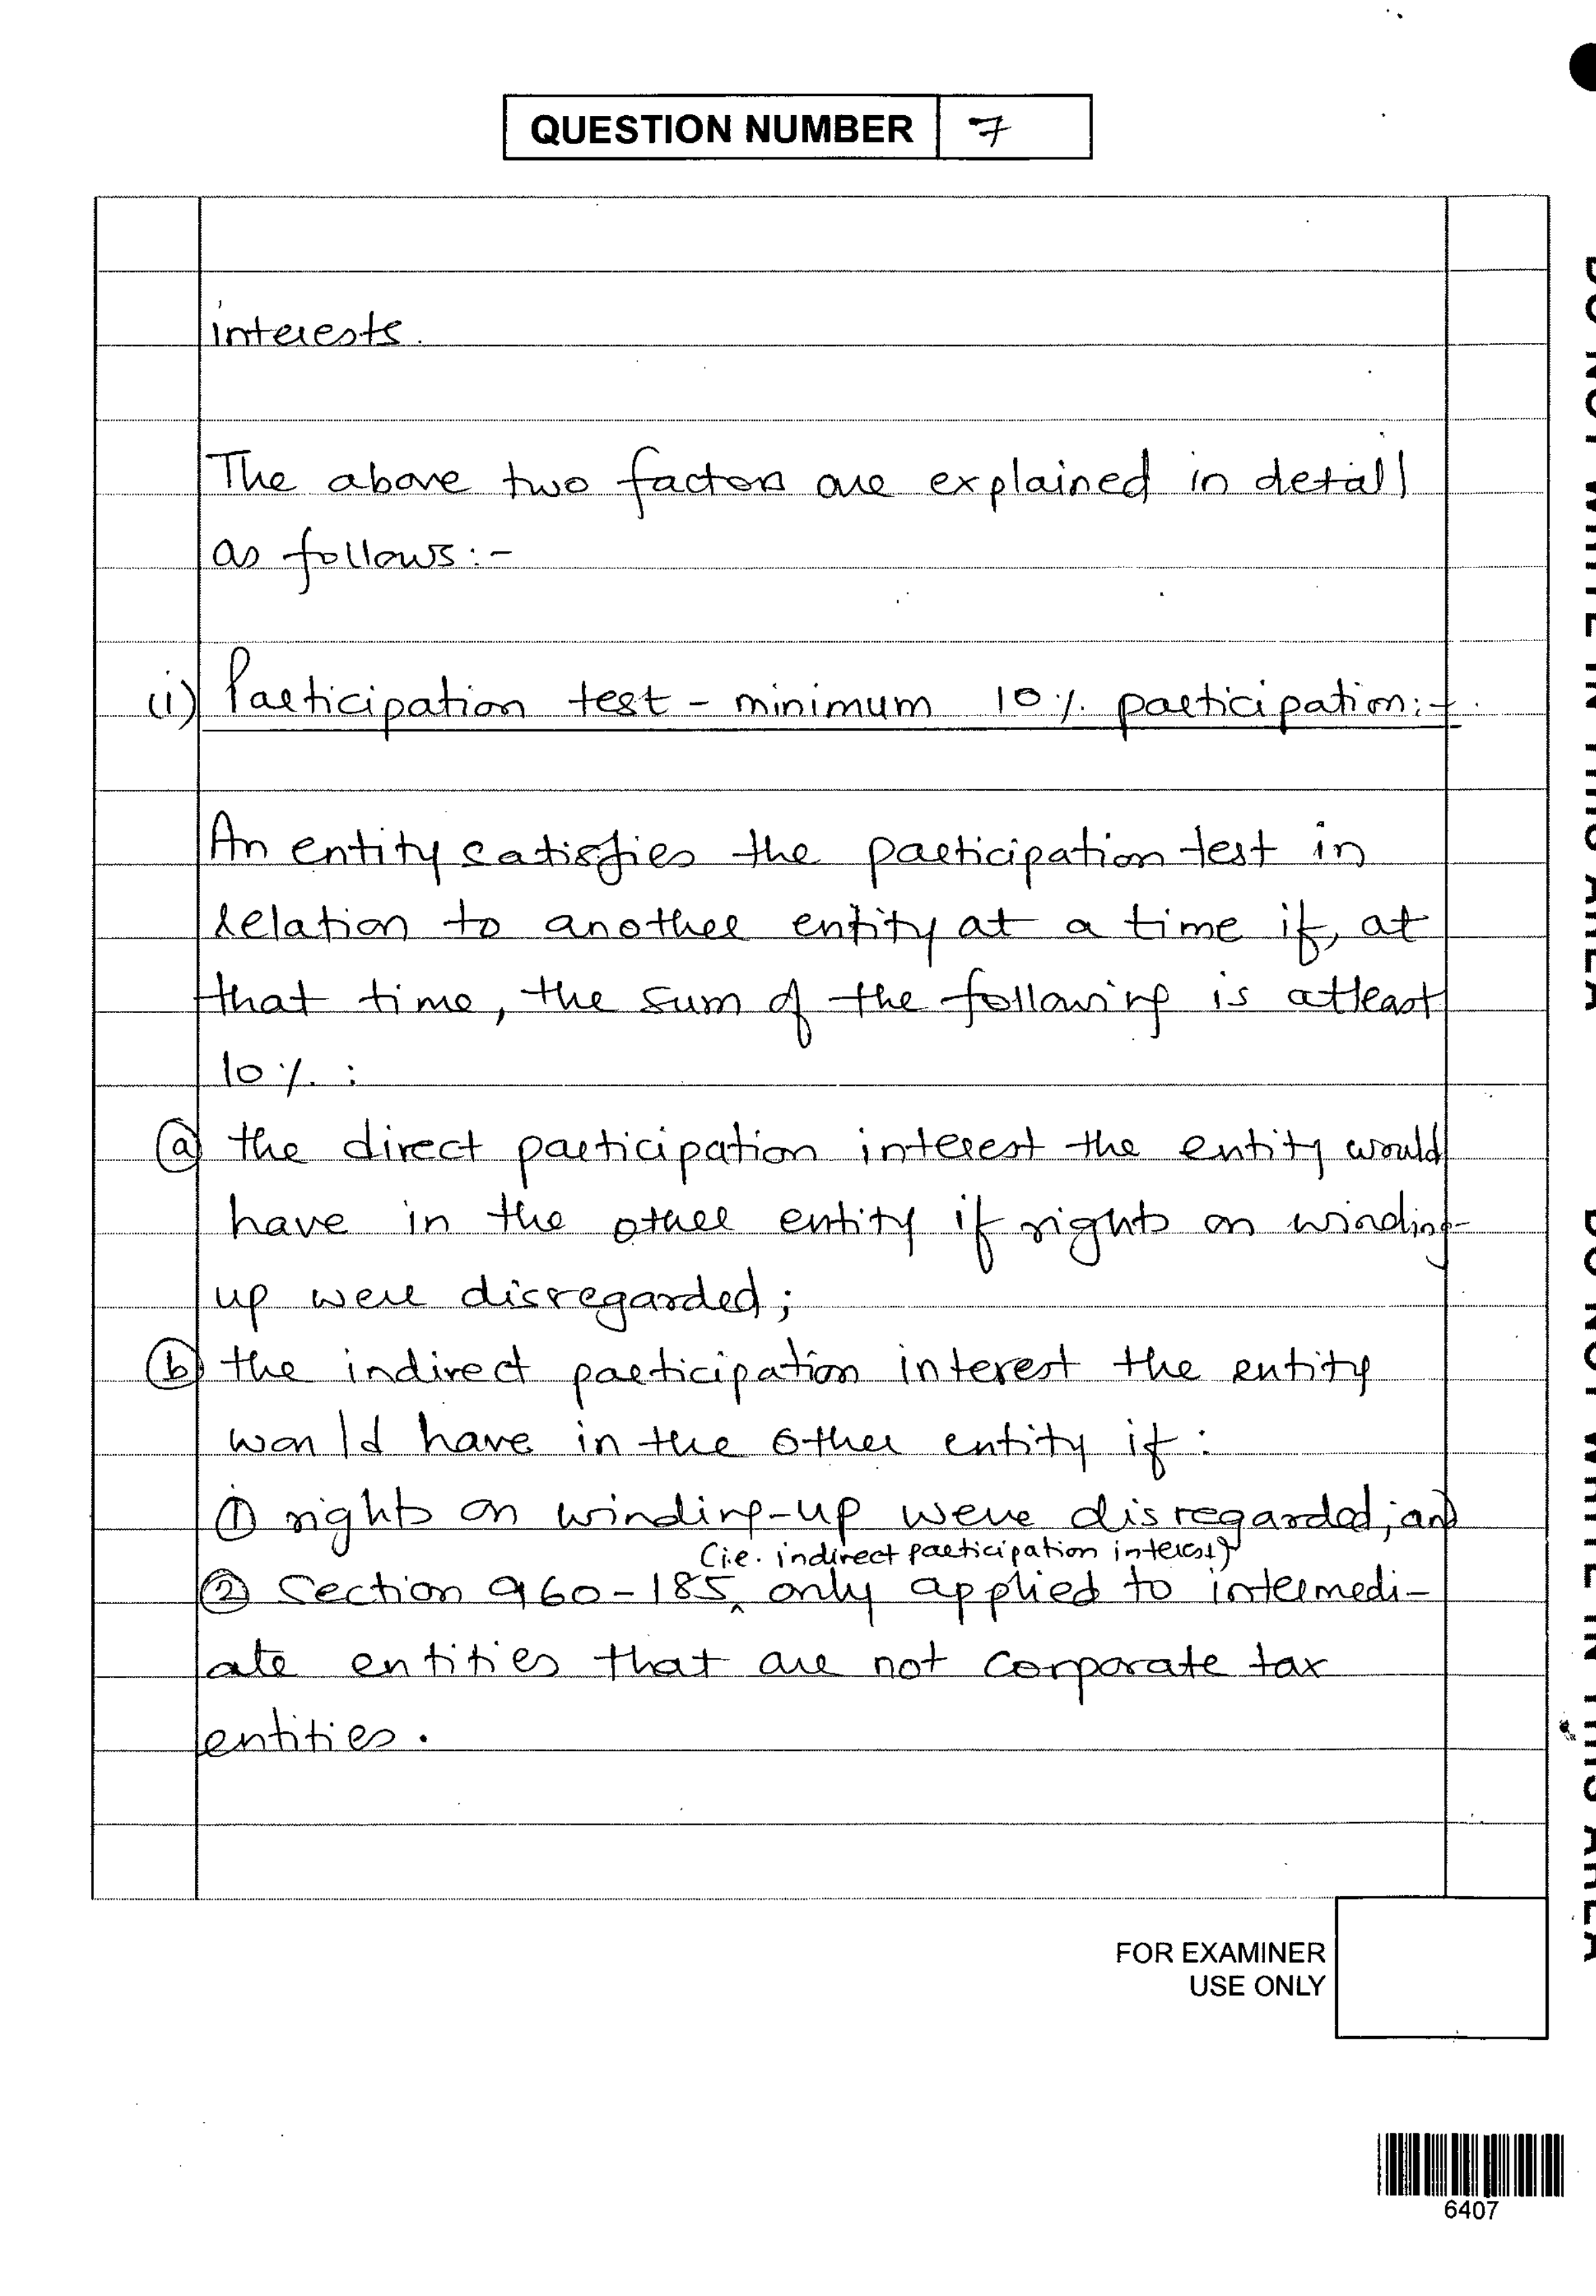 QUESTION NUMBER 7
interests.
The above two factors are explained in detail
as follows:-
(i) Participation test - minimum 10% participation:-
An entity satisfies the participation test in
relation to another entity at a time if, at
that time, the sum of the following is atleast
10% :
(a) the direct participation interest the entity would
have in the other entity if rights on winding-
up were disregarded;
(b) the indirect participation interest the entity
would have in the other entity if :
(1) rights on winding-up were disregarded; and
(i.e. indirect participation interest)
(2) Section 960-185^ only applied to intermedi-
ate entities that are not corporate tax
entities.
FOR EXAMINER
USE ONLY
6407
DO NOT WRITE IN THIS AREA
DO NOT WRITE IN THIS AREA